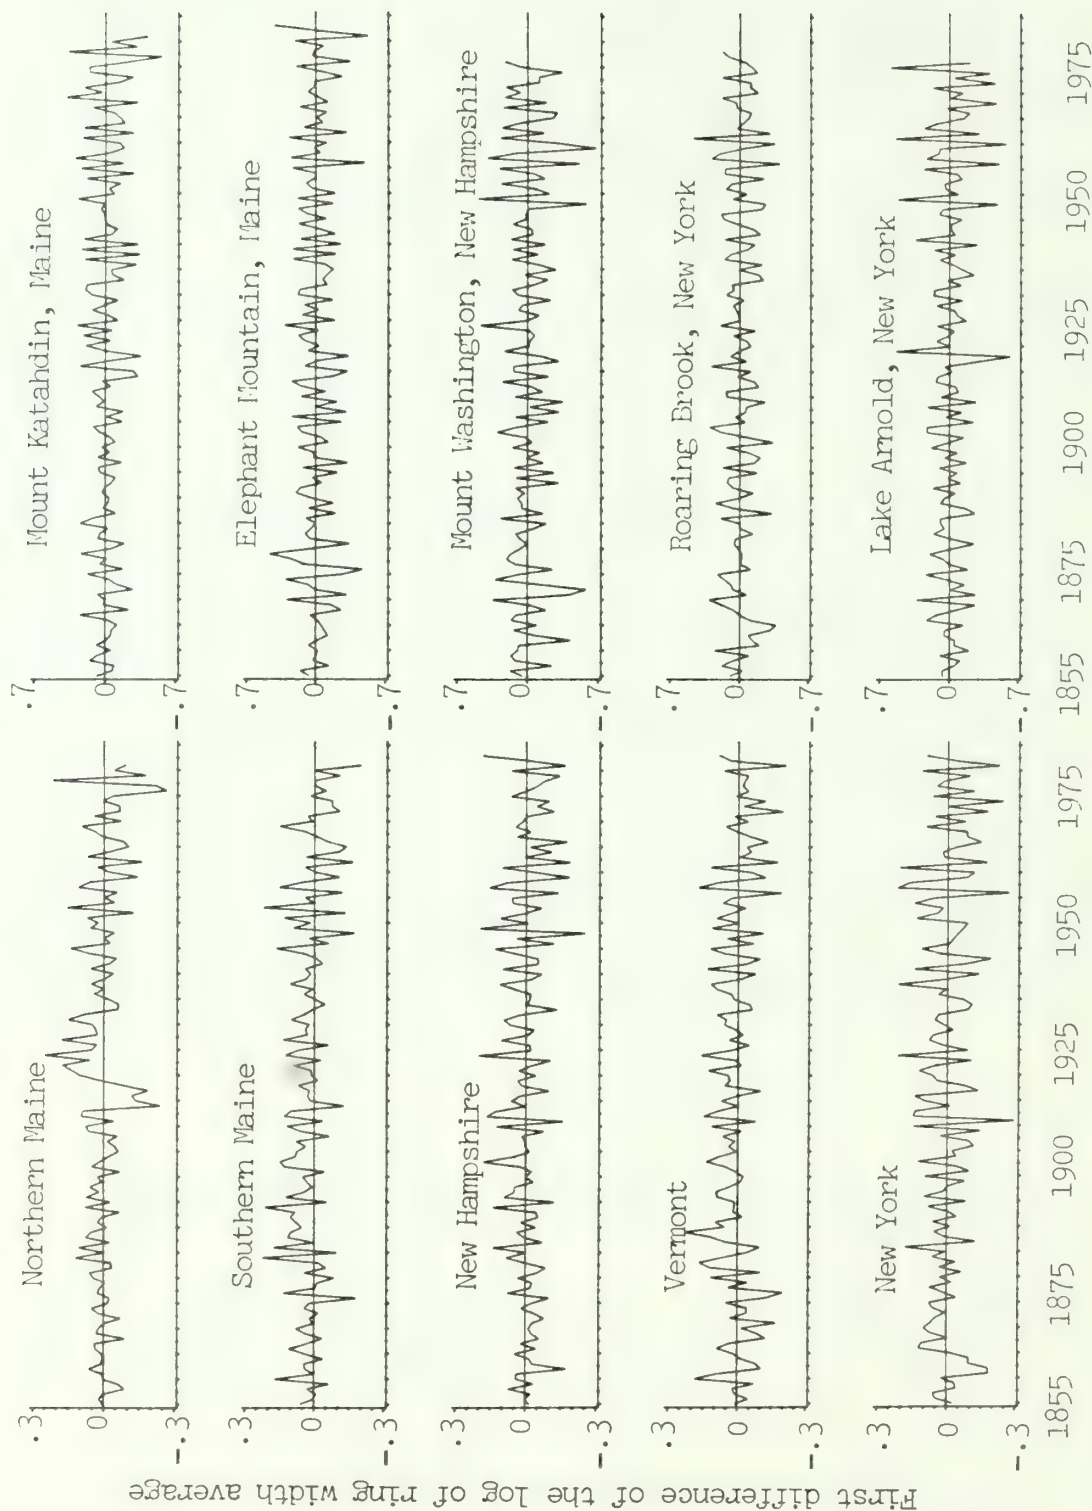 First difference of the log of ring width average
Northern Maine
.3
0
-.3
Southern Maine
.3
0
-.3
New Hampshire
.3
0
-.3
Vermont
.3
0
-.3
New York
.3
0
-.3
1855 1875 1900 1925 1950 1975
Mount Katahdin, Maine
.7
0
-.7
Elephant Mountain, Maine
.7
0
-.7
Mount Washington, New Hampshire
.7
0
-.7
Roaring Brook, New York
.7
0
-.7
Lake Arnold, New York
.7
0
-.7
1855 1875 1900 1925 1950 1975